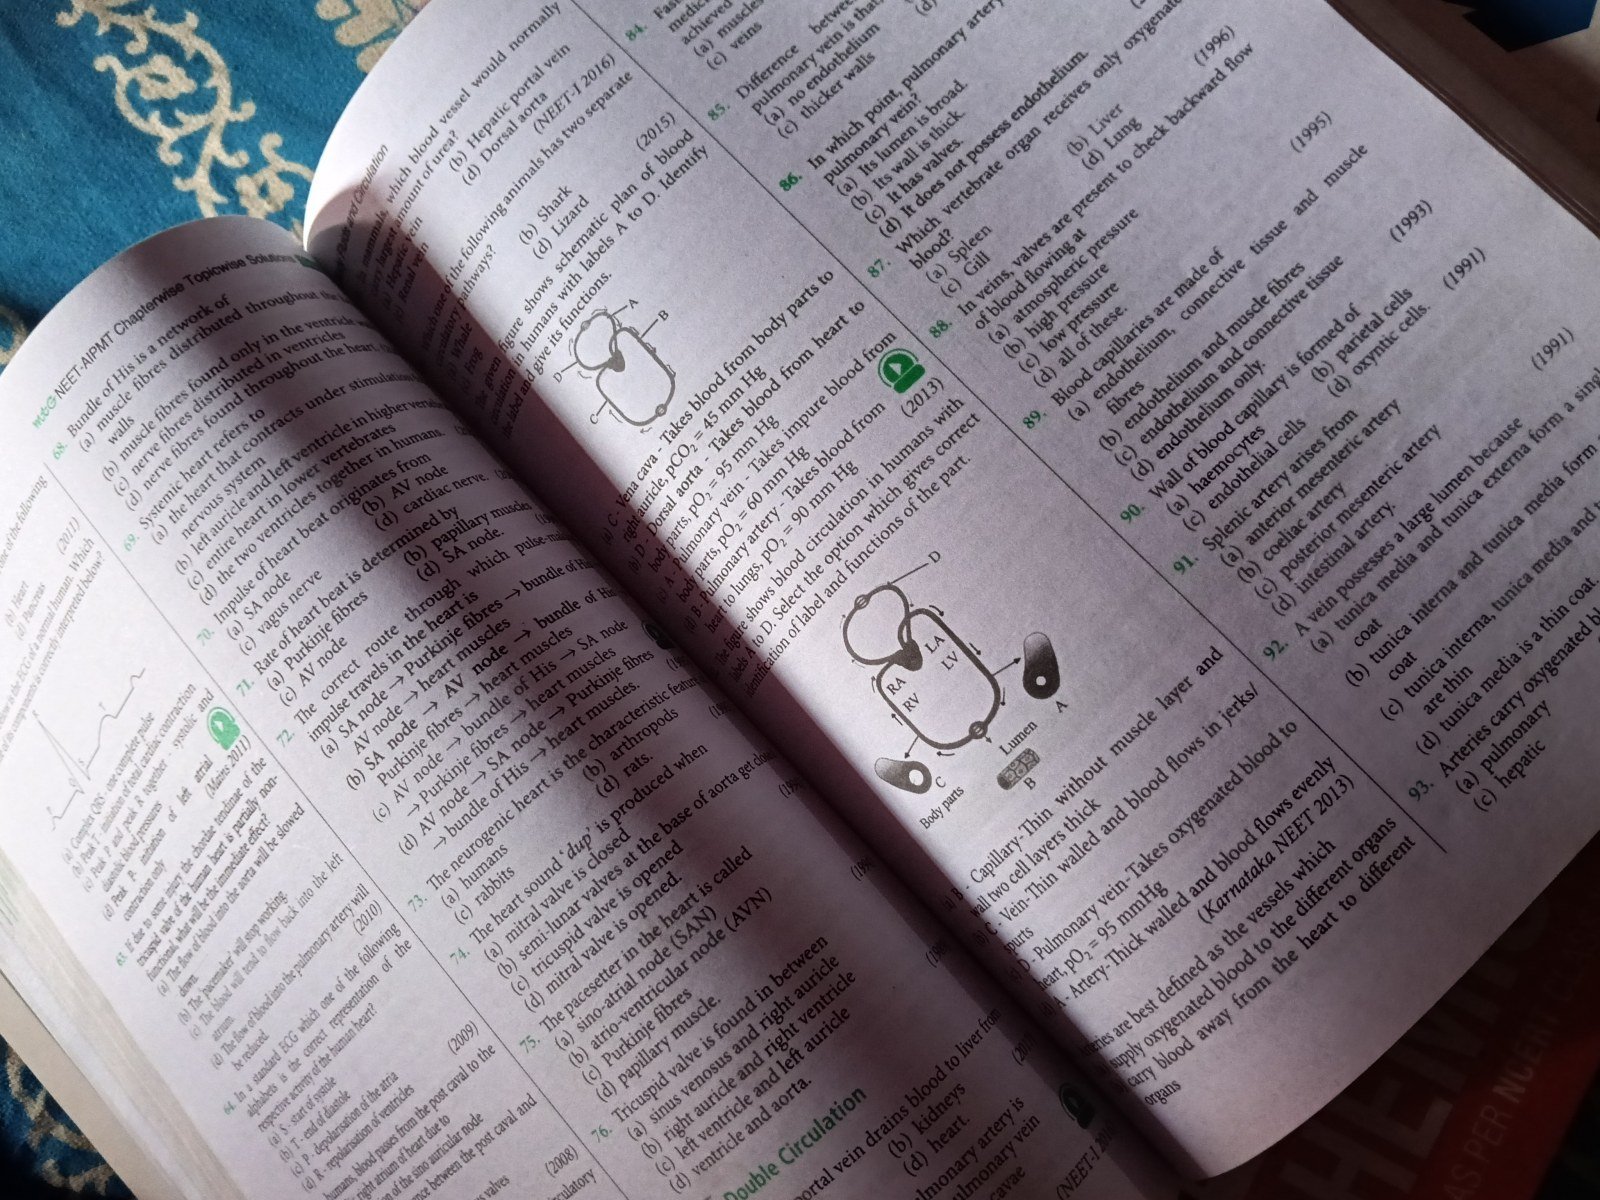 one of the following
(2011)
(b) Heart
(d) Pancreas
the ECG of a normal human. Which
of its components is correctly interpreted below?
(a) Complex QRS - one complete pulse
(b) Peak T - initiation of total cardiac contraction
(c) Peak P and peak R together - systolic and
diastolic blood pressures
(d) Peak P - initiation of left atrial
contraction only
(Mains 2011)
63. If due to some injury the chordae tendinae of the
tricuspid valve of the human heart is partially non-
functional, what will be the immediate effect?
(a) The flow of blood into the aorta will be slowed
down.
(b) The pacemaker will stop working.
(c) The blood will tend to flow back into the left
atrium.
(d) The flow of blood into the pulmonary artery will
be reduced.
(2010)
64. In a standard ECG which one of the following
alphabets is the correct representation of the
respective activity of the human heart?
(a) S - start of systole
(b) T - end of diastole
(c) P - depolarisation of the atria
(d) R - repolarisation of ventricles
(2009)
humans, blood passes from the post caval to the
right atrium of heart due to
of the sino auricular node
between the post caval and
valves
(2008)
NEET-AIPMT Chapterwise Topicwise Solutions
68. Bundle of His is a network of
(a) muscle fibres distributed throughout the
walls
(b) muscle fibres found only in the ventricle
(c) nerve fibres distributed in ventricles
(d) nerve fibres found throughout the heart.
69. Systemic heart refers to
(a) the heart that contracts under stimulation
nervous system
(b) left auricle and left ventricle in higher
(c) entire heart in lower vertebrates
(d) the two ventricles together in humans.
70. Impulse of heart beat originates from
(a) SA node
(b) AV node
(c) vagus nerve
(d) cardiac nerve.
71. Rate of heart beat is determined by
(a) Purkinje fibres
(b) papillary muscles
(c) AV node
(d) SA node.
72. The correct route through which pulse-
impulse travels in the heart is
(a) SA node → Purkinje fibres → bundle of
AV node → heart muscles
(b) SA node → AV node → bundle of His
Purkinje fibres → heart muscles
(c) AV node → bundle of His → SA node
→ Purkinje fibres → heart muscles
(d) AV node → SA node → Purkinje fibres
→ bundle of His → heart muscles.
73. The neurogenic heart is the characteristic
(a) humans
(b) arthropods
(c) rabbits
(d) rats.
74. The heart sound 'dup' is produced when
(a) mitral valve is closed
(b) semi-lunar valves at the base of aorta get
(c) tricuspid valve is opened
(d) mitral valve is opened.
75. The pacesetter in the heart is called
(a) sino-atrial node (SAN)
(b) atrio-ventricular node (AVN)
(c) Purkinje fibres
(d) papillary muscle.
76. Tricuspid valve is found in between
(a) sinus venosus and right auricle
(b) right auricle and right ventricle
(c) left ventricle and left auricle
(d) ventricle and aorta.
Double Circulation
portal vein drains blood to liver from
(b) kidneys
(d) heart.
pulmonary artery is
pulmonary vein
cavae
(NEET-I
Circulation
mammals, which blood vessel would normally
carry largest amount of urea?
(a) Hepatic vein
(b) Hepatic portal vein
(c) Renal vein
(d) Dorsal aorta
(NEET-I 2016)
Which one of the following animals has two separate
circulatory pathways?
(a) Whale
(b) Shark
(c) Frog
(d) Lizard
(2015)
The given figure shows schematic plan of blood
circulation in humans with labels A to D. Identify
the label and give its functions.
A
B
D
C
(a) C - Vena cava - Takes blood from body parts to
right auricle, pCO2 = 45 mm Hg
(b) D - Dorsal aorta - Takes blood from heart to
body parts, pO2 = 95 mm Hg
(c) A - Pulmonary vein - Takes impure blood from
body parts, pO2 = 60 mm Hg
(d) B - Pulmonary artery - Takes blood from
heart to lungs, pO2 = 90 mm Hg
(2013)
The figure shows blood circulation in humans with
labels A to D. Select the option which gives correct
identification of label and functions of the part.
D
LA
LV
RA
RV
A
Lumen
B
C
Body parts
(a) B - Capillary-Thin without muscle layer and
wall two cell layers thick
(b) C - Vein-Thin walled and blood flows in jerks/
spurts
D - Pulmonary vein-Takes oxygenated blood to
heart, pO2 = 95 mmHg
(d) A - Artery-Thick walled and blood flows evenly
(Karnataka NEET 2013)
Arteries are best defined as the vessels which
supply oxygenated blood to the different organs
carry blood away from the heart to different
organs
84.
achieved
(a) muscles
(c) veins
85. Difference between
pulmonary vein is that,
(a) no endothelium
(c) thicker walls
86. In which point, pulmonary artery
pulmonary vein?
(a) Its lumen is broad.
(b) Its wall is thick.
(c) It has valves.
(d) It does not possess endothelium.
87. Which vertebrate organ receives only oxygenated
blood?
(a) Spleen
(b) Liver
(c) Gill
(d) Lung
(1996)
88. In veins, valves are present to check backward flow
of blood flowing at
(a) atmospheric pressure
(b) high pressure
(c) low pressure
(d) all of these.
(1995)
89. Blood capillaries are made of
(a) endothelium, connective tissue and muscle
fibres
(b) endothelium and muscle fibres
(c) endothelium and connective tissue
(d) endothelium only.
(1993)
90. Wall of blood capillary is formed of
(a) haemocytes
(b) parietal cells
(c) endothelial cells
(d) oxyntic cells.
(1991)
91. Splenic artery arises from
(a) anterior mesenteric artery
(b) coeliac artery
(c) posterior mesenteric artery
(d) intestinal artery.
(1991)
92. A vein possesses a large lumen because
(a) tunica media and tunica externa form a single
coat
(b) tunica interna and tunica media form
coat
(c) tunica interna, tunica media and
are thin
(d) tunica media is a thin coat.
93. Arteries carry oxygenated
(a) pulmonary
(c) hepatic
AS PER NCERT CLASS